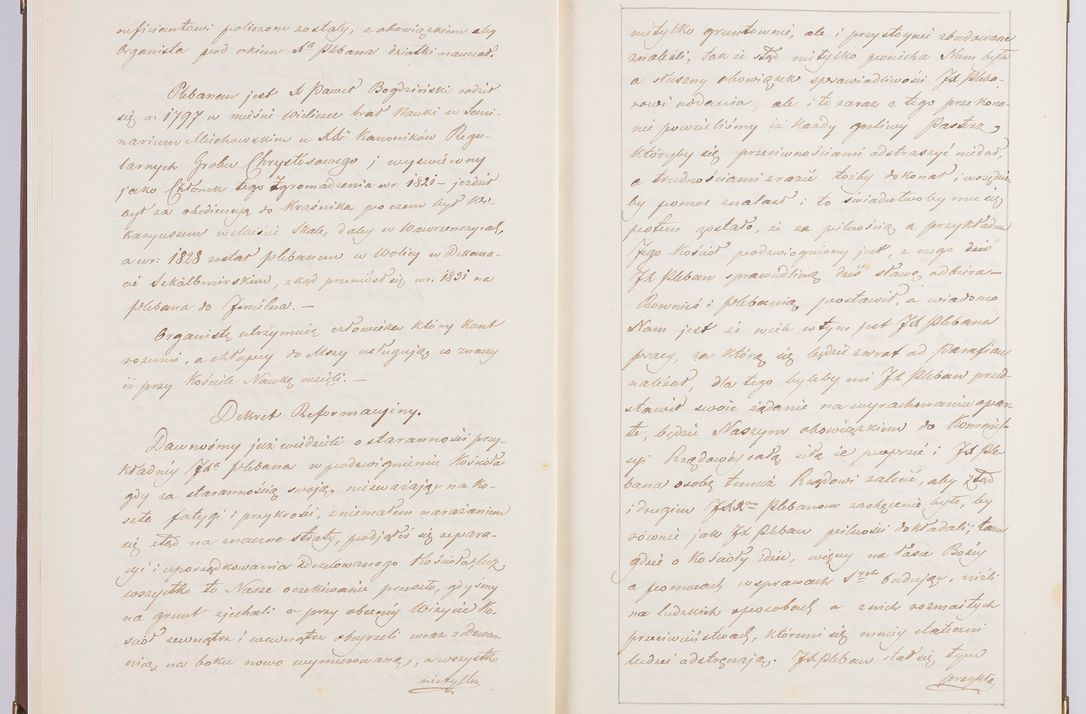 neficiantowi policzone zostały, z obowiązkiem aby
Organista pod okiem Xa Plebana dziatki nauczał.
Plebanem jest X Paweł Bogdziński rodził
się r. 1797 w mieście Wieliczce brał Nauki w Semi-
narium Miechowskim u XXw Kanoników Regu-
larnych Grobu Chrystusowego i wyświęcony
jako Członek tego Zgromadzenia w r. 1821 – jeździł
był za obediencyą do Kraśnika poczem był Wi-
karyuszem w Mieście Skale, daléy w Wawrzenczycach,
a w r. 1828 został plebanem w Wolicy w Dekana-
cie Skalbmirskim, zkąd przeniósł się w r. 1831 na
plebana do Imielna. —
Organistę utrzymuie człowieka który Kant
rozumi, a chłopcy do Mszy usługuią co znany
iż przy Kościele Naukę wzięli. —
Dekret Reformacyiny.
Dawnośmy już wiedzieli o staranności przy-
kładnéy JXa plebana w podzwignieniu Kościoła
gdy za starannością swoją, nieuważając na ko-
szta fatygi i przykrości, z niemałem narażeniem
się ztąd na znaczne straty, podjąłeś się repara-
cyi i uporządkowania zdezelowanego Kościoła, lecz
wszystko to Nasze oczekiwanie przeszło, gdyśmy
na grunt zjechali a przy obecnéy Wizycie Ko-
sciół zewnątrz i wewnątrz obejrzeli wraz z Dzwon-
nicą na boku nowo wymurowaną, a wszystko
nietylko
nietylko gruntownie, ale i przystoynie zbudowane
znaleźli, tak iż stąd nietylko pociecha Nam była
a słuszny obowiązek sprawiedliwości JX Pleba-
nowi oddania, ale i te zaraz z tego przekona-
nie powzieliśmy iż każdy gorliwy Pasterz,
któryby się przeciwnościami odstraszyć niedał,
a trudnościami zrazić tożby dokonał, i wszędzie
by pomoc znalazł i to świadectwoby mu iéj
potem zostało, że za pilnością a przykładem
Jego Kościół podzwigniony jest, z czego dziś
JX Pleban sprawiedliwą dziś sławę odbiera –
Równiéż i plebanią postawił, a wiadomo
Nam jest że wiele w tym jest JX Plebana
pracy, za którą się będzie zwrot od Parafian
należał, dla tego byleby mi JX Pleban przed-
stawił swoie żądanie na wyrachowaniu opar-
te, będzie Naszym obowiązkiem do Kommis-
syi Rządowéy całą siłą ie poprzéć i JX Ple-
bana osobę temuż Rządowi zalécić, aby ztąd
i drugim JXXom Plebanom zachęcenie było, by
równie jak JX Pleban pilności dokładali; tam
gdzie o Kościoły idzie, więcéy na łasce Bożéy
a pomocach w sprawach Stych budując, niźli
na ludzkich sposobach a z nich rozmaitych
przeciwieństwach, któremi się mniéy stateczni
ludzie odstręczają. JX Pleban stał się tym
przykła